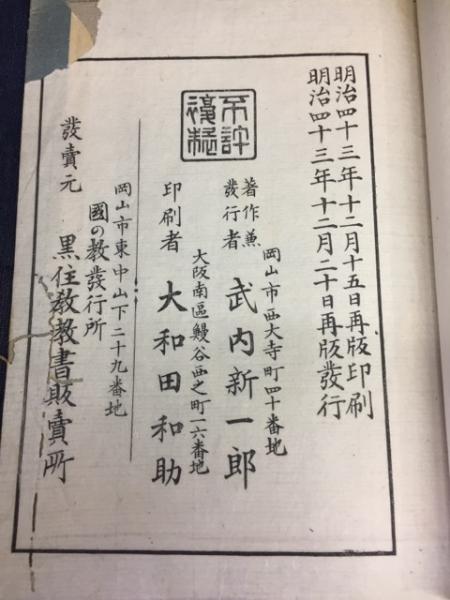 明治四十三年十二月十五日再版印刷
明治四十三年十二月二十日再版發行
不許複製
岡山市西大寺町四十番地
著作兼發行者 武内新一郎
大阪南區鰻谷西之町一六番地
印刷者 大和田和助
岡山市東中山下二十九番地
國の教發行所
發賣元 黒住教教書販賣所